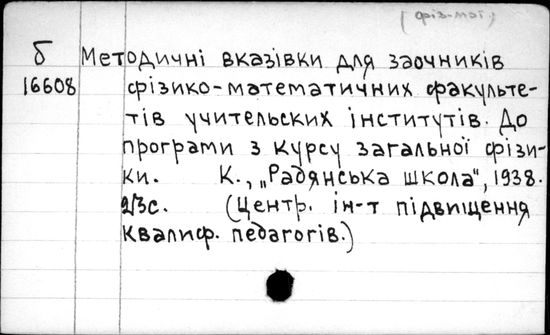 (фіз-мат)
б Методичні вказівки для заочників
16608 фізико-математичних факульте-
тів учительских інститутів. До
програми з курсу загальної фізи-
ки. К., „Радянська школа", 1938.
(Центр. ін-т підвищення
кваліф. педагогів.)